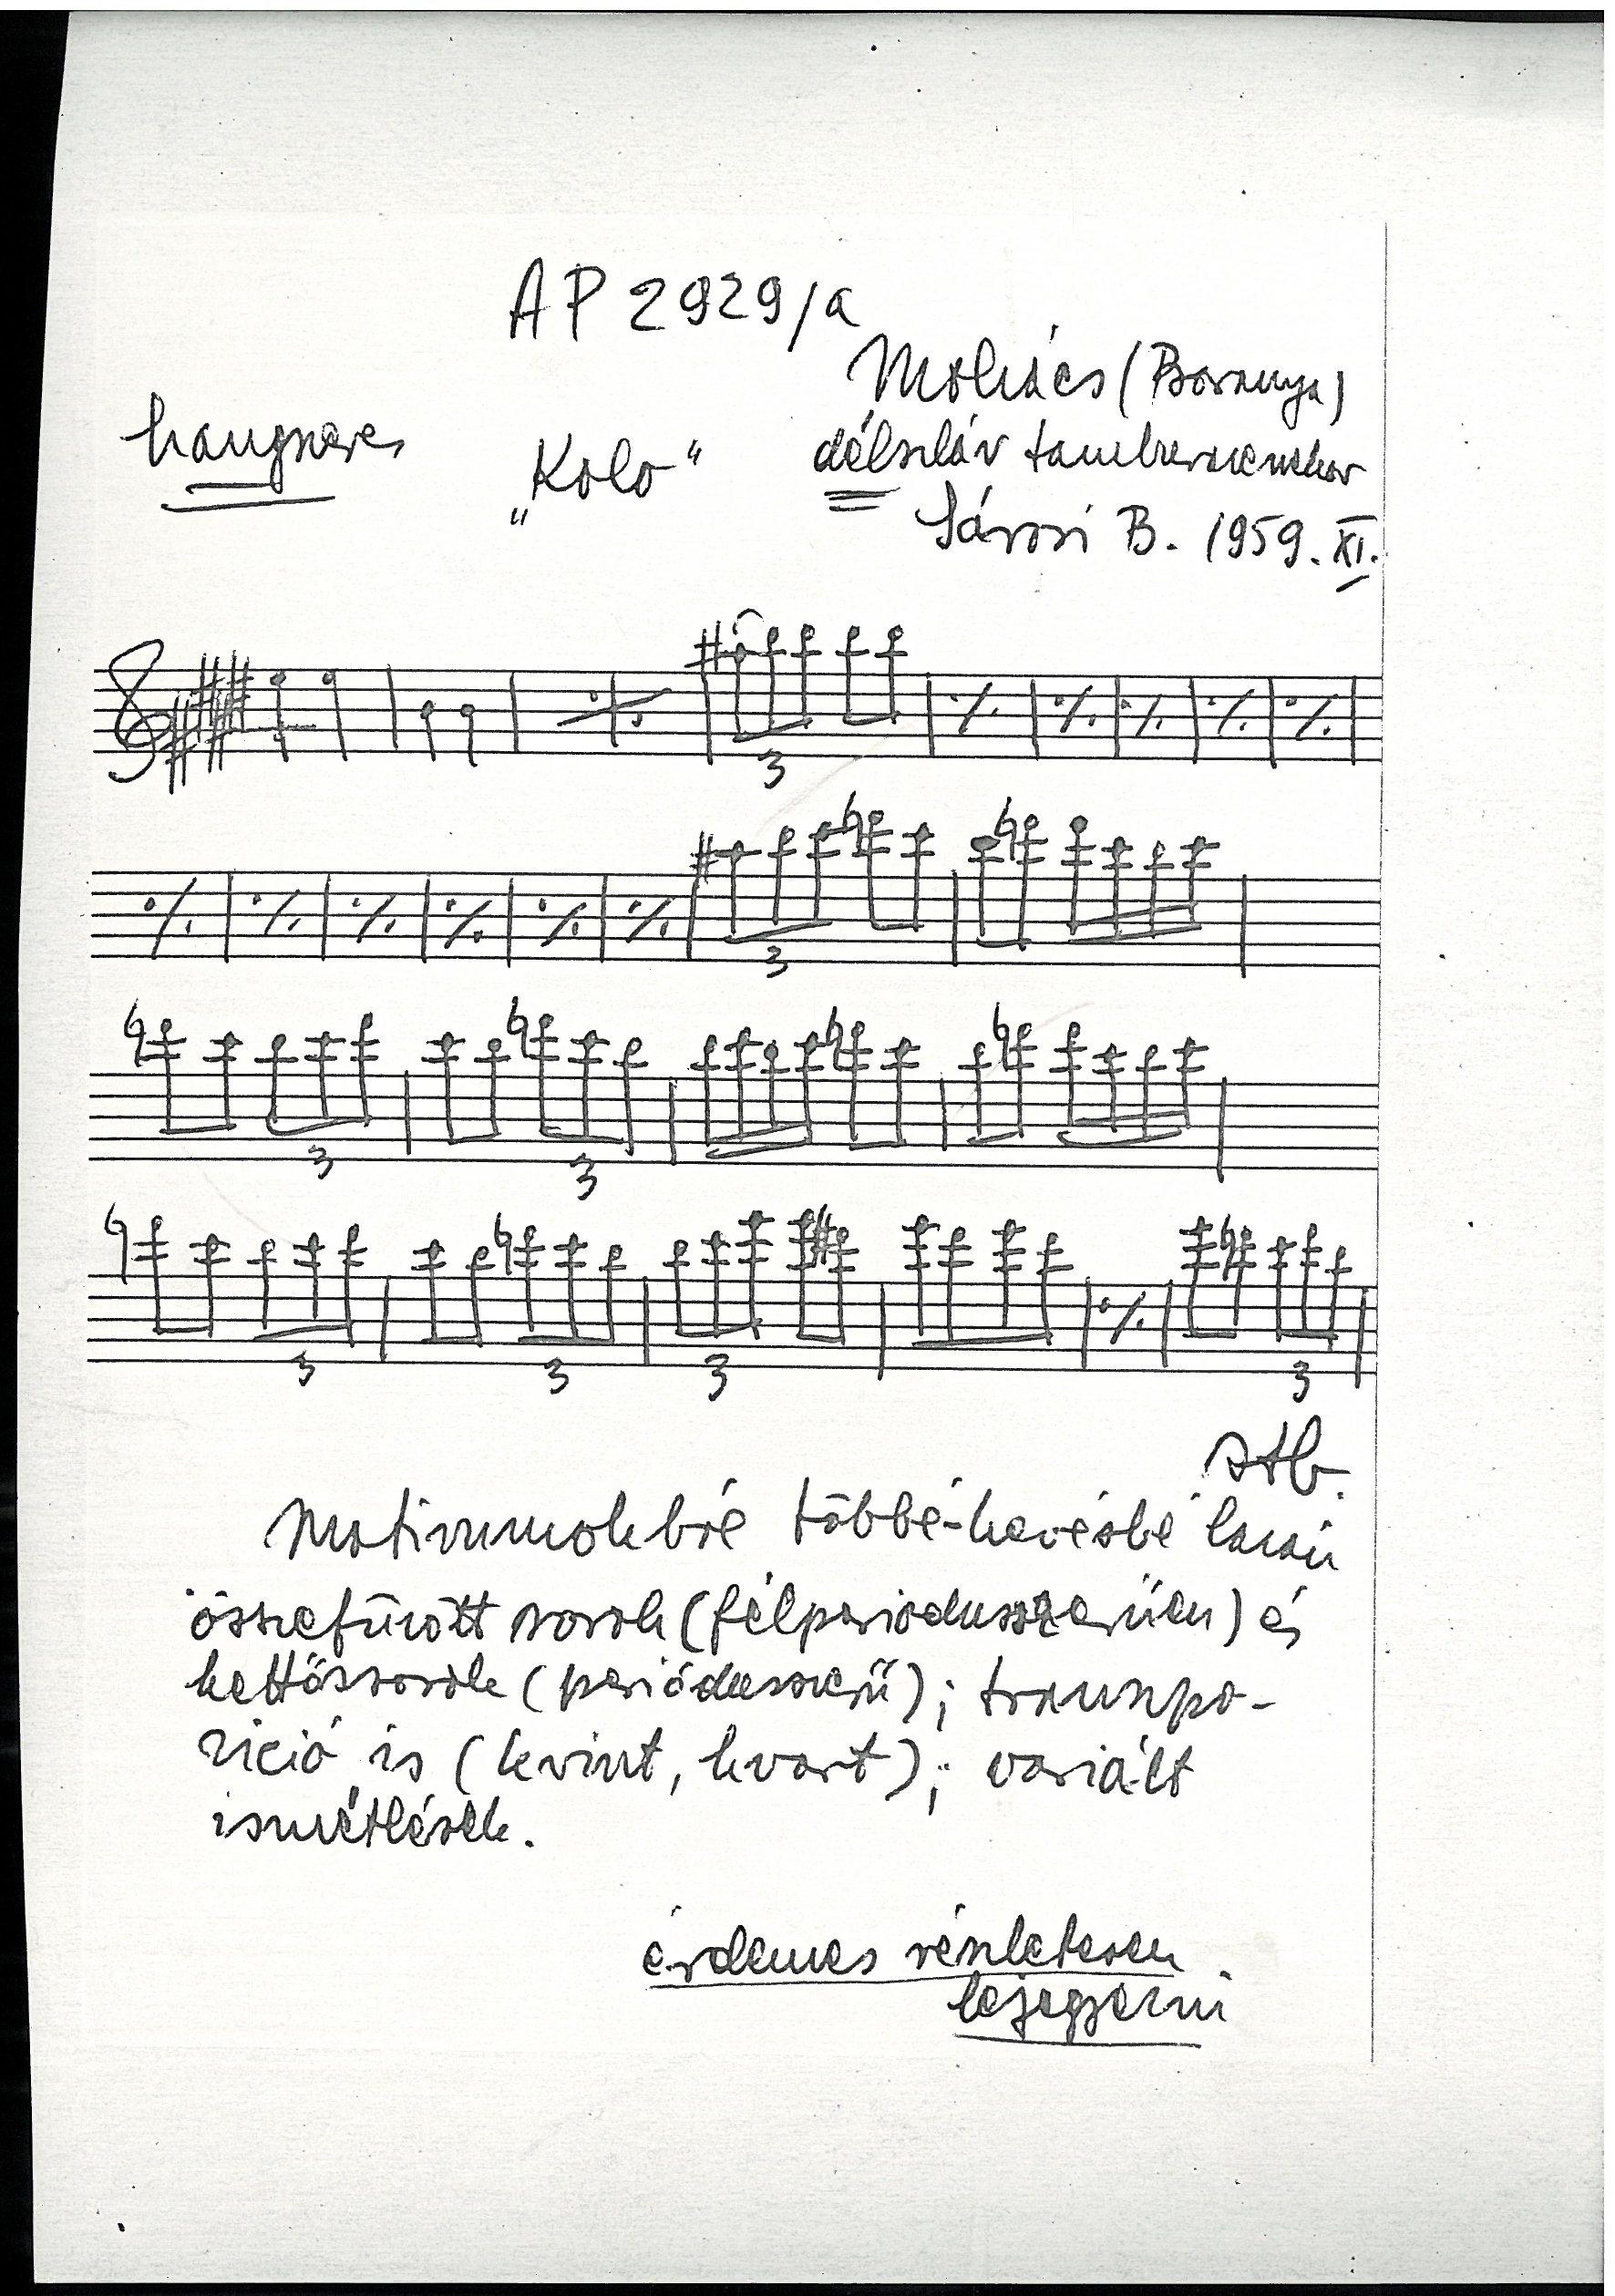 AP 2929/a
Mohács (Baranya)
hangszeres
"Kolo"
délszláv tamburazenekar
Sárosi B. 1959. XI.
3
3
3
3
3
3
3
3
stb.
Motívumokból többé-kevésbé lazán
összefűzött sorok (félperiódusszerűen) és
kettőssorok (periódusszerű); transzpo-
zíció is (kvint, kvart); variált
ismétlések.
érdemes részletesen
lejegyezni